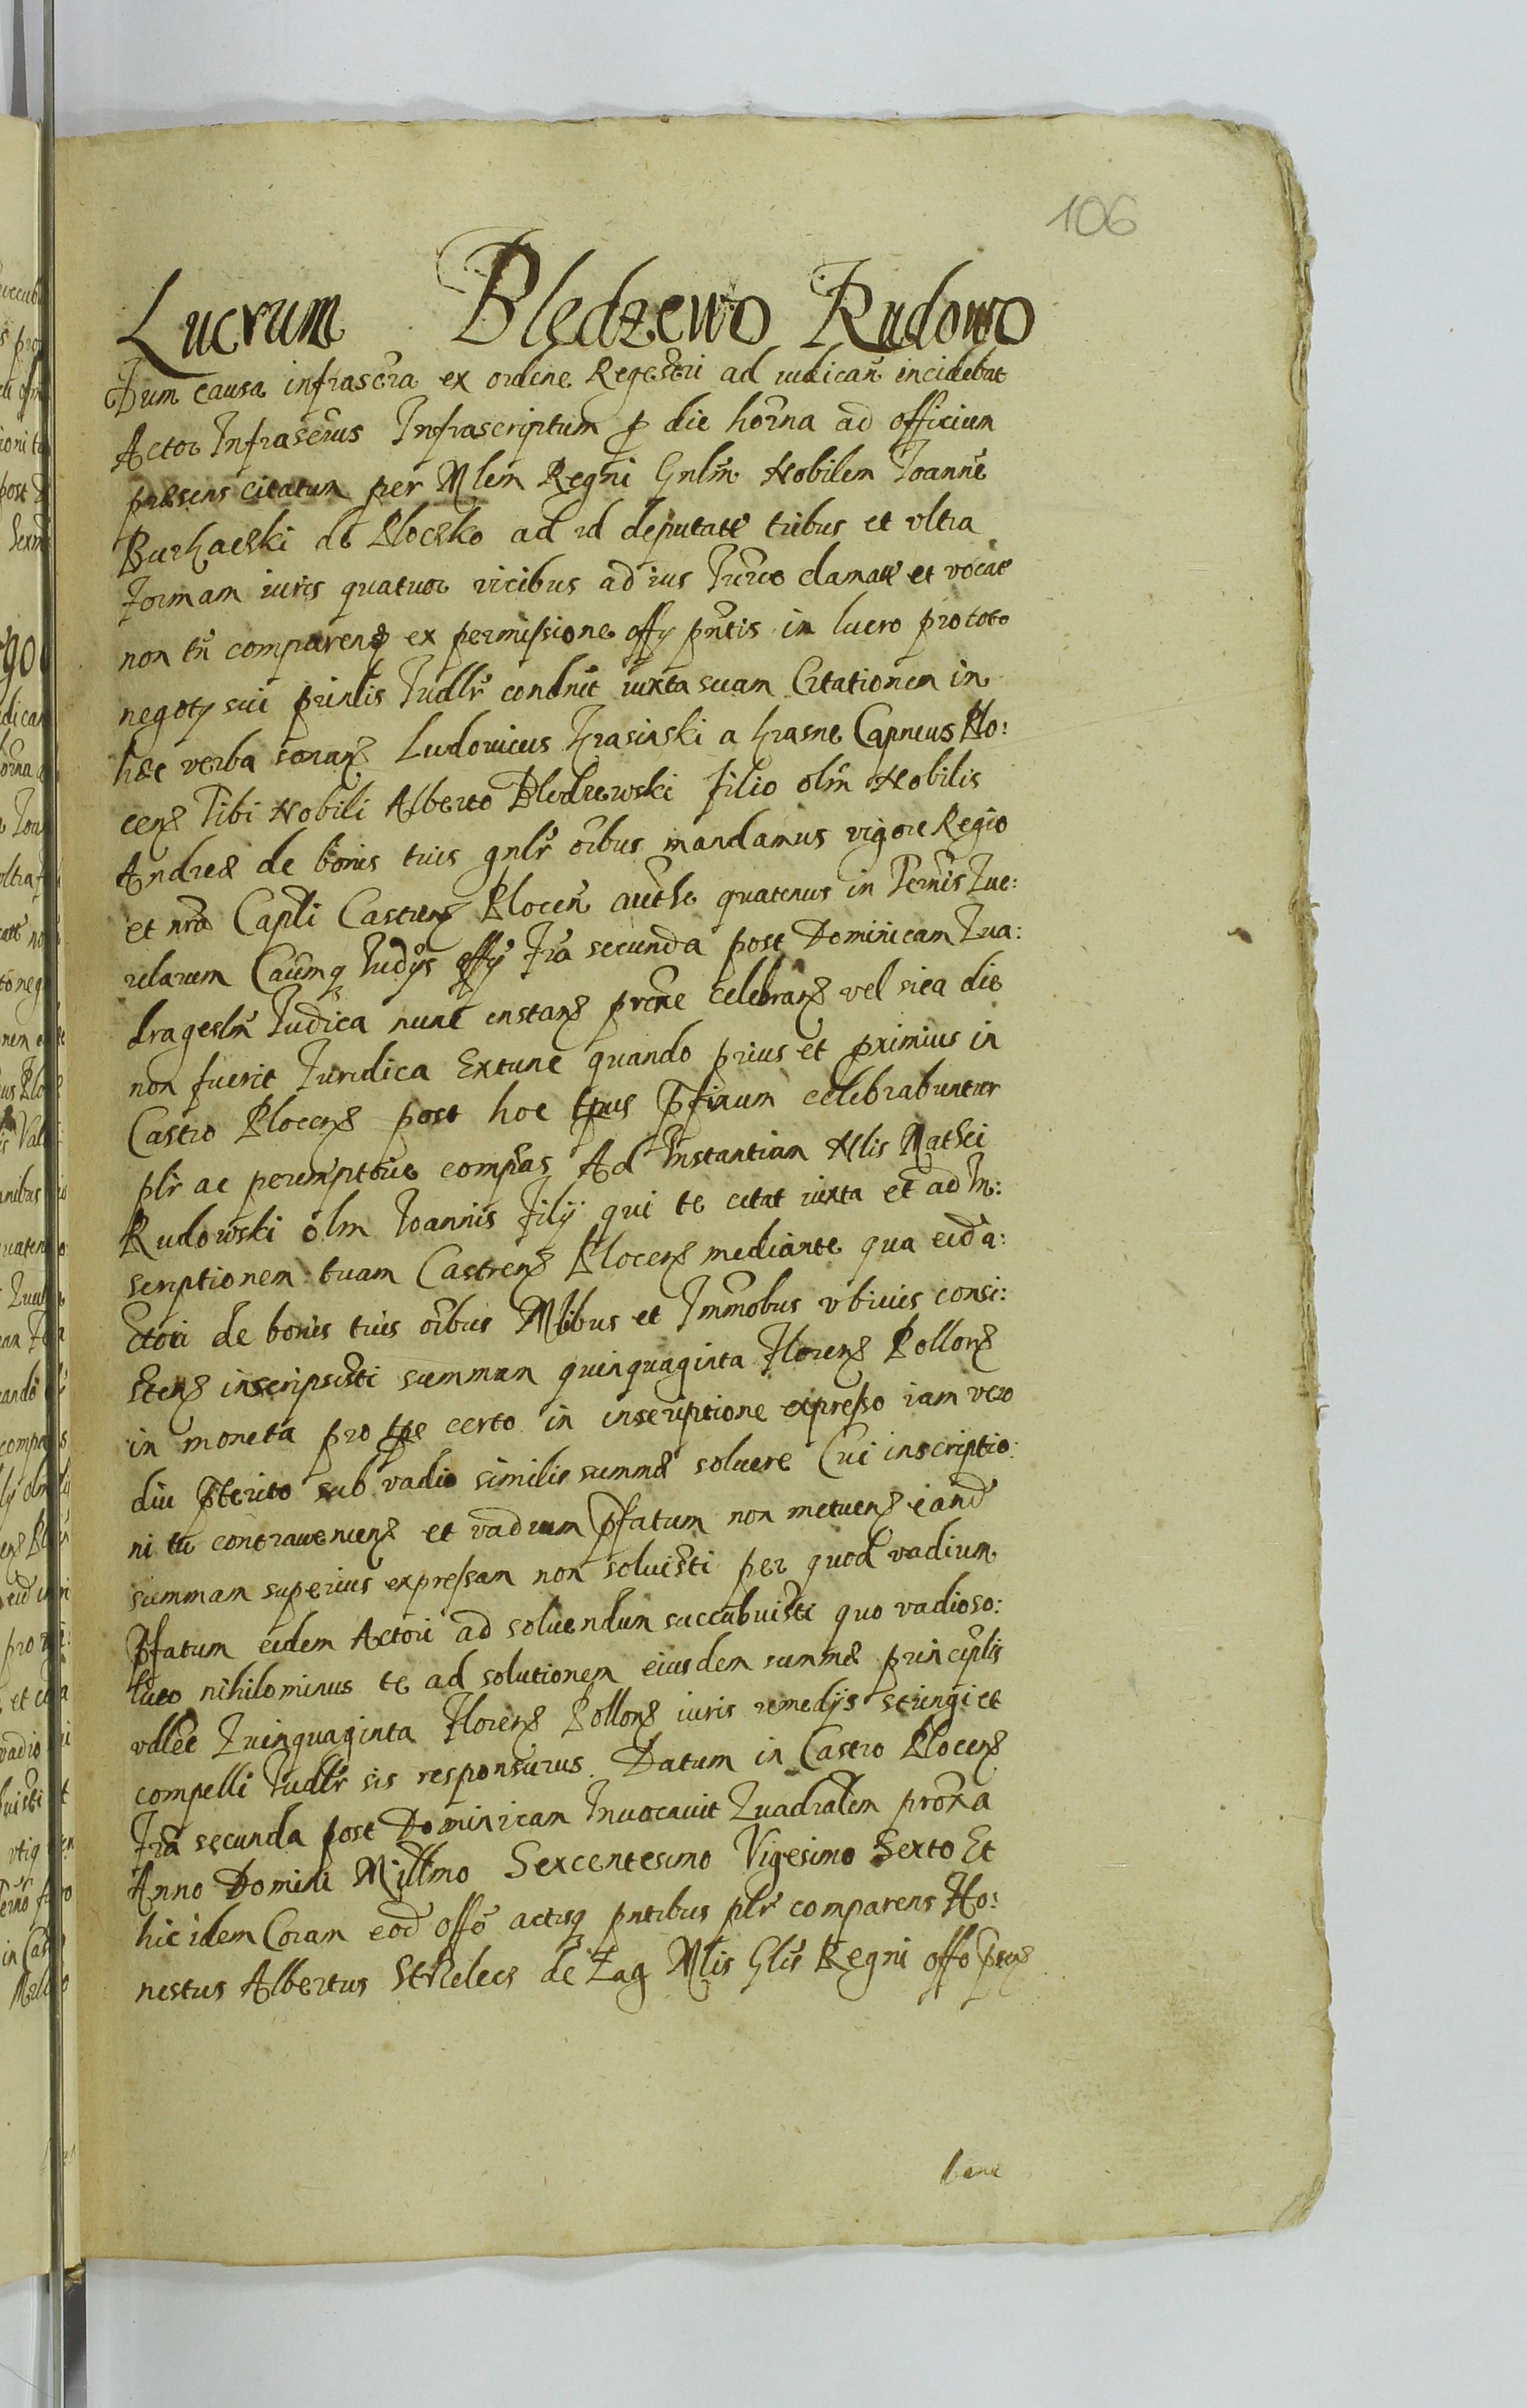 106
Lucrum Bledzewo Rudowo
Dum causa infrascra ex ordine Regestri ad iudican̄ incidebat
Actor Infrascrus Infrascriptum p die horna ad officium
præsens citatum per Mlem Regni Gnlm Nobilem Joannē
de Plocsko ad id deputatū tribus et vltra
formam iuris quatuor vicibus ad ius clamatū et vocatū
non tn̄ comparen̄ ex permissione offy pntis in lucro pro toto
negoty sui prinlis Judlr condnit iuxta suam Citationem in
hæc verba sonan̄ Ludovicus Krasinski a Krasne Capneus Plo:
cen̄ Tibi Nobili Alberto Bledzewski filio olm Nobilis
Andreæ de bonis tuis gnlr oibus mandamus vigore Regio
et nrā Capli Castren̄ Plocen̄ authe quatenus in Ternis Que:
relarum Caumq Judys offy fra secunda post Dominicam Qua:
drageslm Judica nunc instan̄ celebran̄ vel si ea die
non fuerit Juridica Extunc quando prius et pximius in
Castro Plocen̄ post hoc tpus celebrabuntur
plr ac peremptorie compas Ad Instantiam Nlis Mathei
Rudowski olm Joannis filij qui te citat iuxta et ad In:
scriptionem tuam Castren̄ Plocen̄ mediante qua eid a:
ctori de bonis tuis oibus Mlibus et Immobus vbiuis consi:
sten̄ inscripsisti summam quinquaginta floren̄ Pollon̄
in moneta pro tpe certo in inscriptione expresso iam vero
diu pterito sub vadio similis summæ soluere Cui inscriptio:
ni tu contraueniens et vadium pfatum non metuens eand
summam superius expressam non soluisti per quod vadium
pfatum eidem Actori ad soluendum succubuisti quo vadio so:
luto nihilominus te ad solutionem eiusdem summæ principlis
vdlēt Quinquaginta floren̄ Pollon̄ iuris remedijs stringi et
compelli Judlr sis responsurus. Datum in Castro Plocen̄
fra secunda post Dominicam Inuocauit Quadralem prona
Anno Domini Millmo Sexcentesimo Vigesimo Sexto Et
hic idem Coram eod offo actisq pntibus plr comparens Ho:
nestus Albertus Strzelecs de Zag Mlis Glis Regni offo
bene